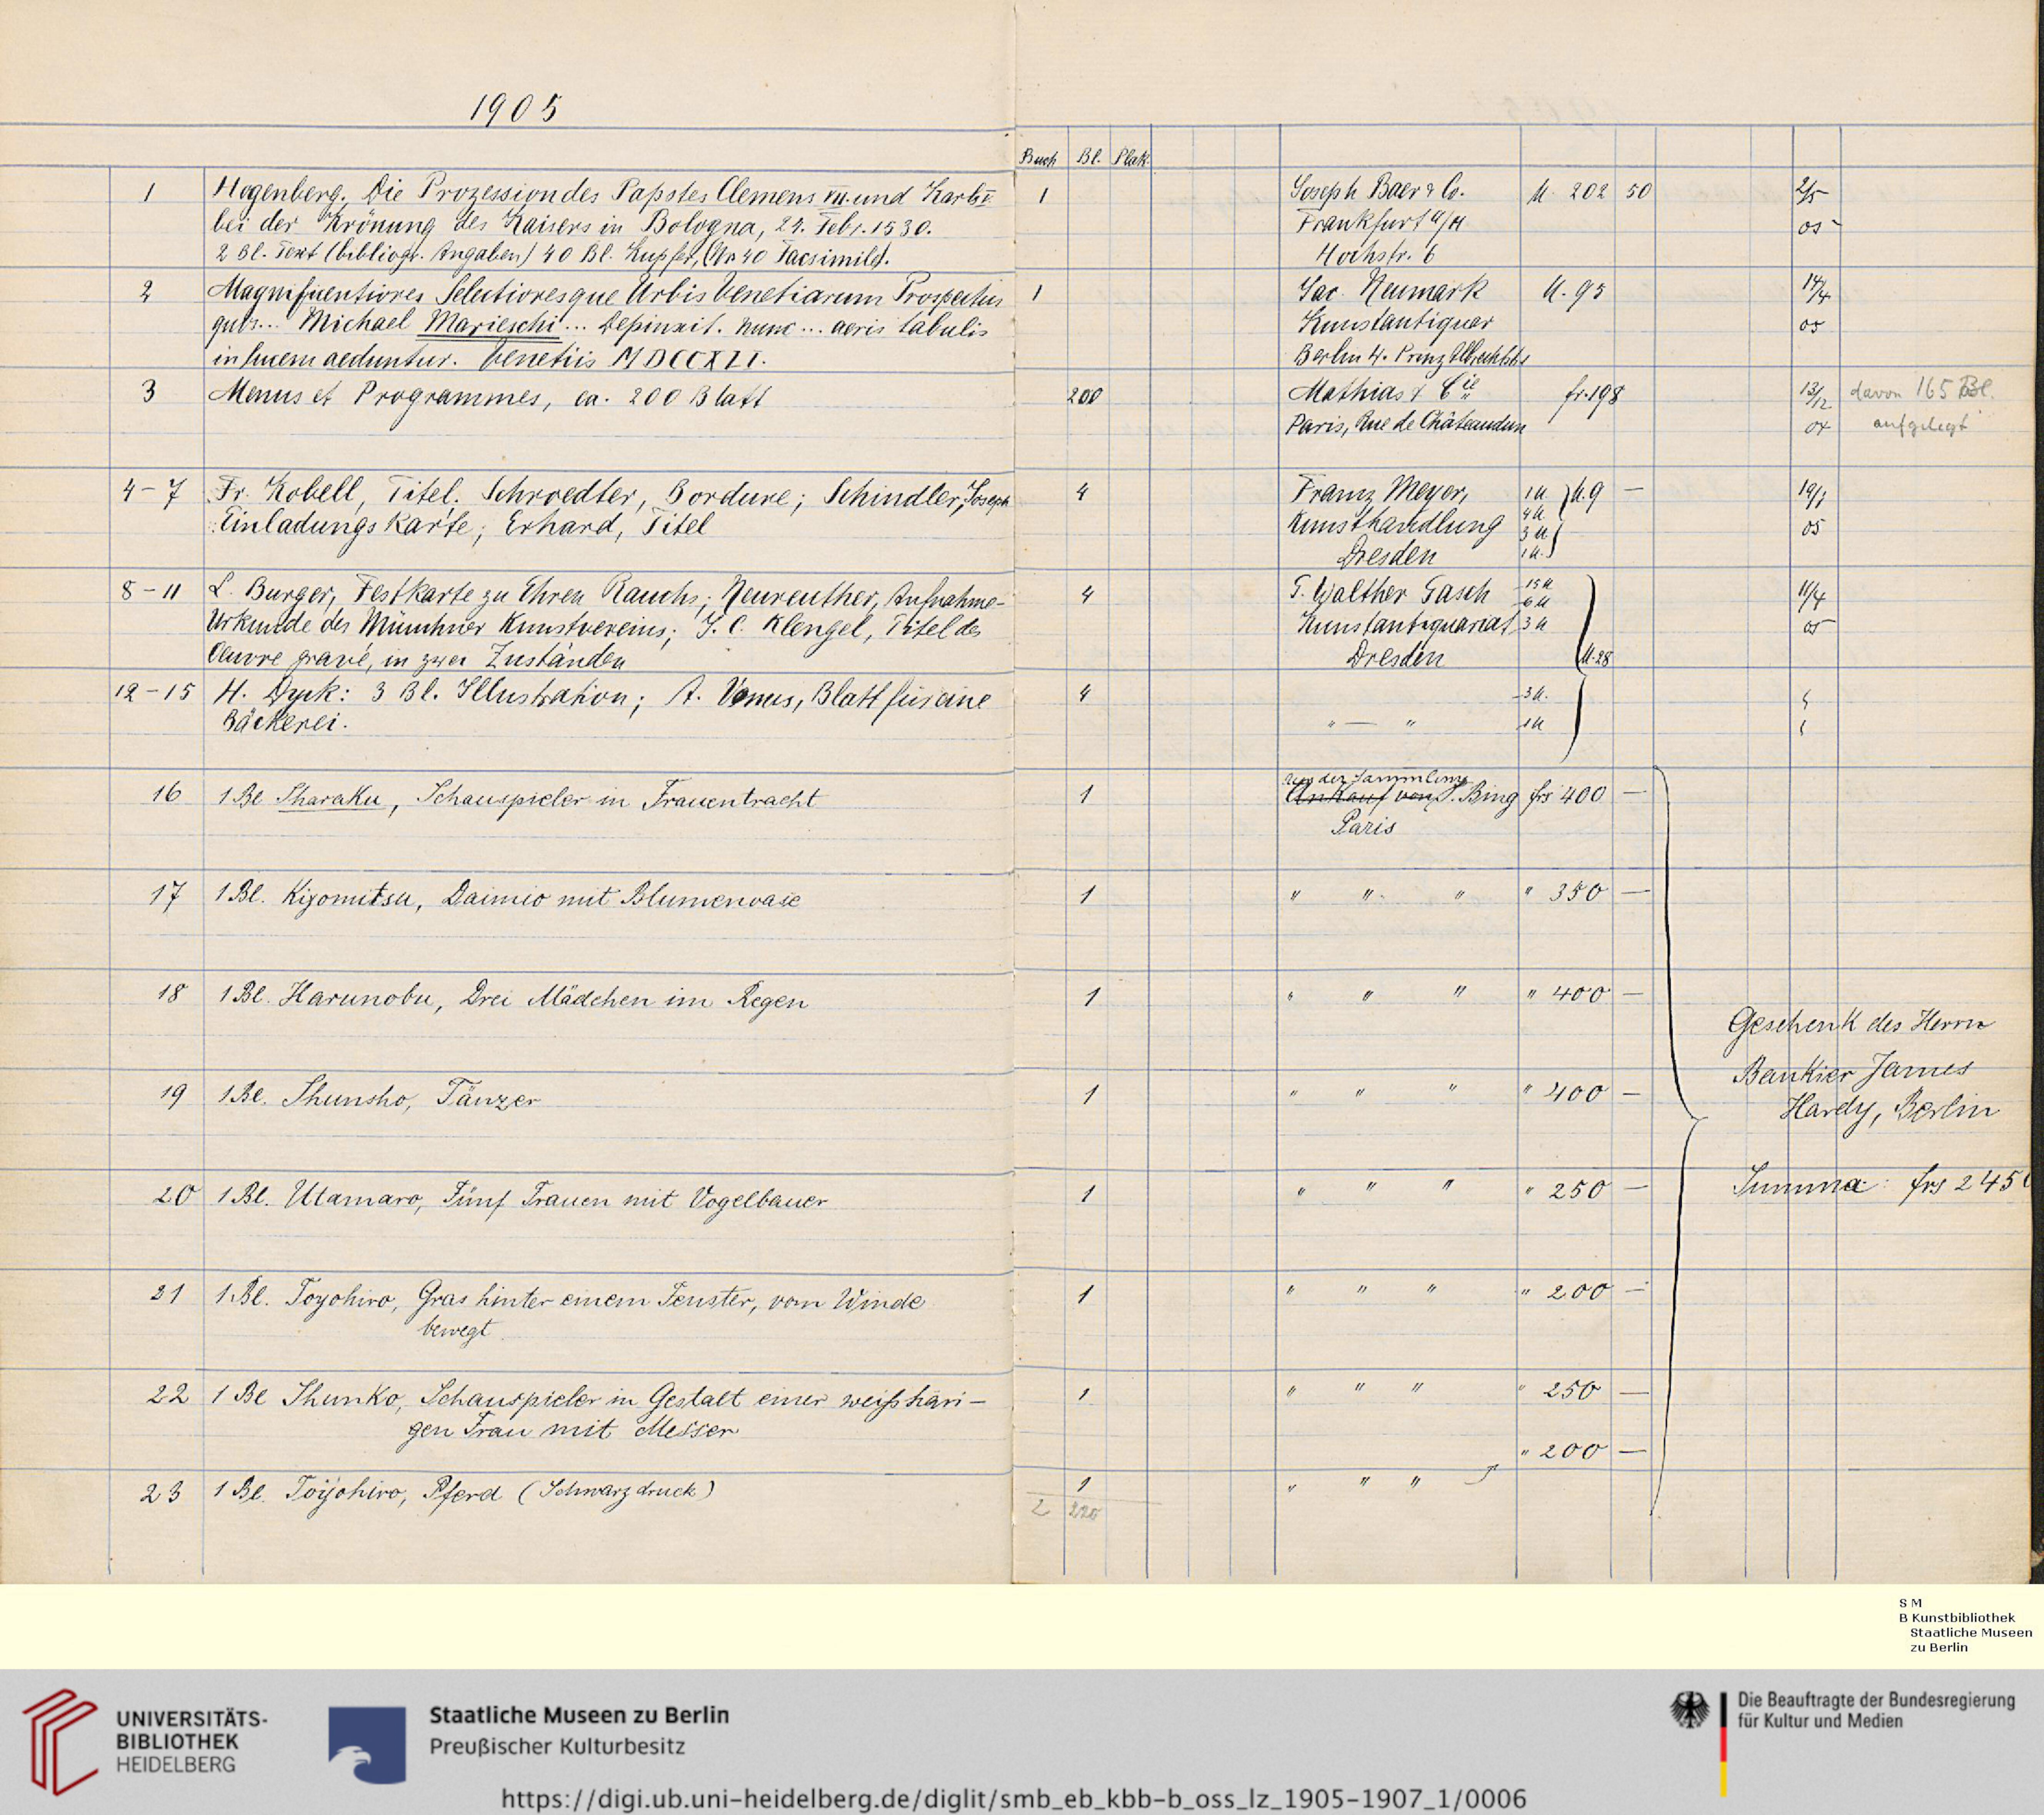 1905
Buch Bl. Plak.
1 Hogenberg. Die Prozession des Papstes Clemens VII. und Karls V. 1 Joseph Baer & Co. M. 202 50 2/5
bei der Krönung des Kaisers in Bologna, 24. Febr. 1530. Frankfurt a/M 05
2 Bl. Text (bibliogr. Angaben) 40 Bl. Kupfer, (Nr 40 Facsimile). Hochstr. 6
2 Magnificentiores Selectioresque Urbis Venetiarum Prospectus 1 Jac. Neumark M. 95 14/4
quos... Michael Marieschi... Depinxit. nunc... aeris tabulis Kunstantiquar 05
in lucem aeduntur. Venetiis MDCCXLI. Berlin W. Prinz Albrechtstr
3 Menus et Programmes, ca. 200 Blatt 200 Mathias & Cie fr. 198 13/12 davon 165 Bl.
Paris, Rue de Châteaudun 04 aufgelegt
4-7 Fr. Kobell, Titel; Schroedter, Bordure; Schindler, Joseph 4 Franz Meyer, 1 M. M. 9 — 19/1
Einladungskarte; Erhard, Titel Kunsthandlung 4 M. 3 M. 05
Dresden 1 M.
8-11 L. Burger, Festkarte zu Ehren Rauchs; Neureuther, Aufnahme- 4 T. Walther Gasch 15 M 6 M 11/4
Urkunde des Münchner Kunstvereins; J. C. Klengel, Titel des Kunstantiquariat 3 M 05
Oeuvre gravé, in zwei Zuständen Dresden M. 28
12-15 H. Dyck: 3 Bl. Illustration; A. Venus, Blatt für eine 4 3 M.
Bäckerei. " — " 1 M
aus der Sammlung
16 1 Bl Sharaku, Schauspieler in Frauentracht 1 Ankauf von S. Bing frs 400 —
Paris
17 1 Bl. Kiyomitsu, Daimio mit Blumenvase 1 " " " " 350 —
18 1 Bl. Harunobu, Drei Mädchen im Regen 1 " " " " 400 —
Geschenk des Herrn
Bankier James
19 1 Bl. Shunsho, Tänzer 1 " " " " 400 —
Hardy, Berlin
20 1 Bl. Utamaro, Fünf Frauen mit Vogelbauer 1 " " " " 250 — Summa: frs 2450
21 1 Bl. Toyohiro, Gras hinter einem Fenster, vom Winde 1 " " " " 200 —
bewegt
22 1 Bl Shunko, Schauspieler in Gestalt einer weißhäri- 1 " " " " 250 —
gen Frau mit Messer
" 200 —
23 1 Bl. Toyohiro, Pferd (Schwarzdruck) 1 " " "
2 220
S M
B Kunstbibliothek
Staatliche Museen
zu Berlin
UNIVERSITÄTS-
BIBLIOTHEK
HEIDELBERG
Staatliche Museen zu Berlin
Preußischer Kulturbesitz
Die Beauftragte der Bundesregierung
für Kultur und Medien
https://digi.ub.uni-heidelberg.de/diglit/smb_eb_kbb-b_oss_lz_1905-1907_1/0006